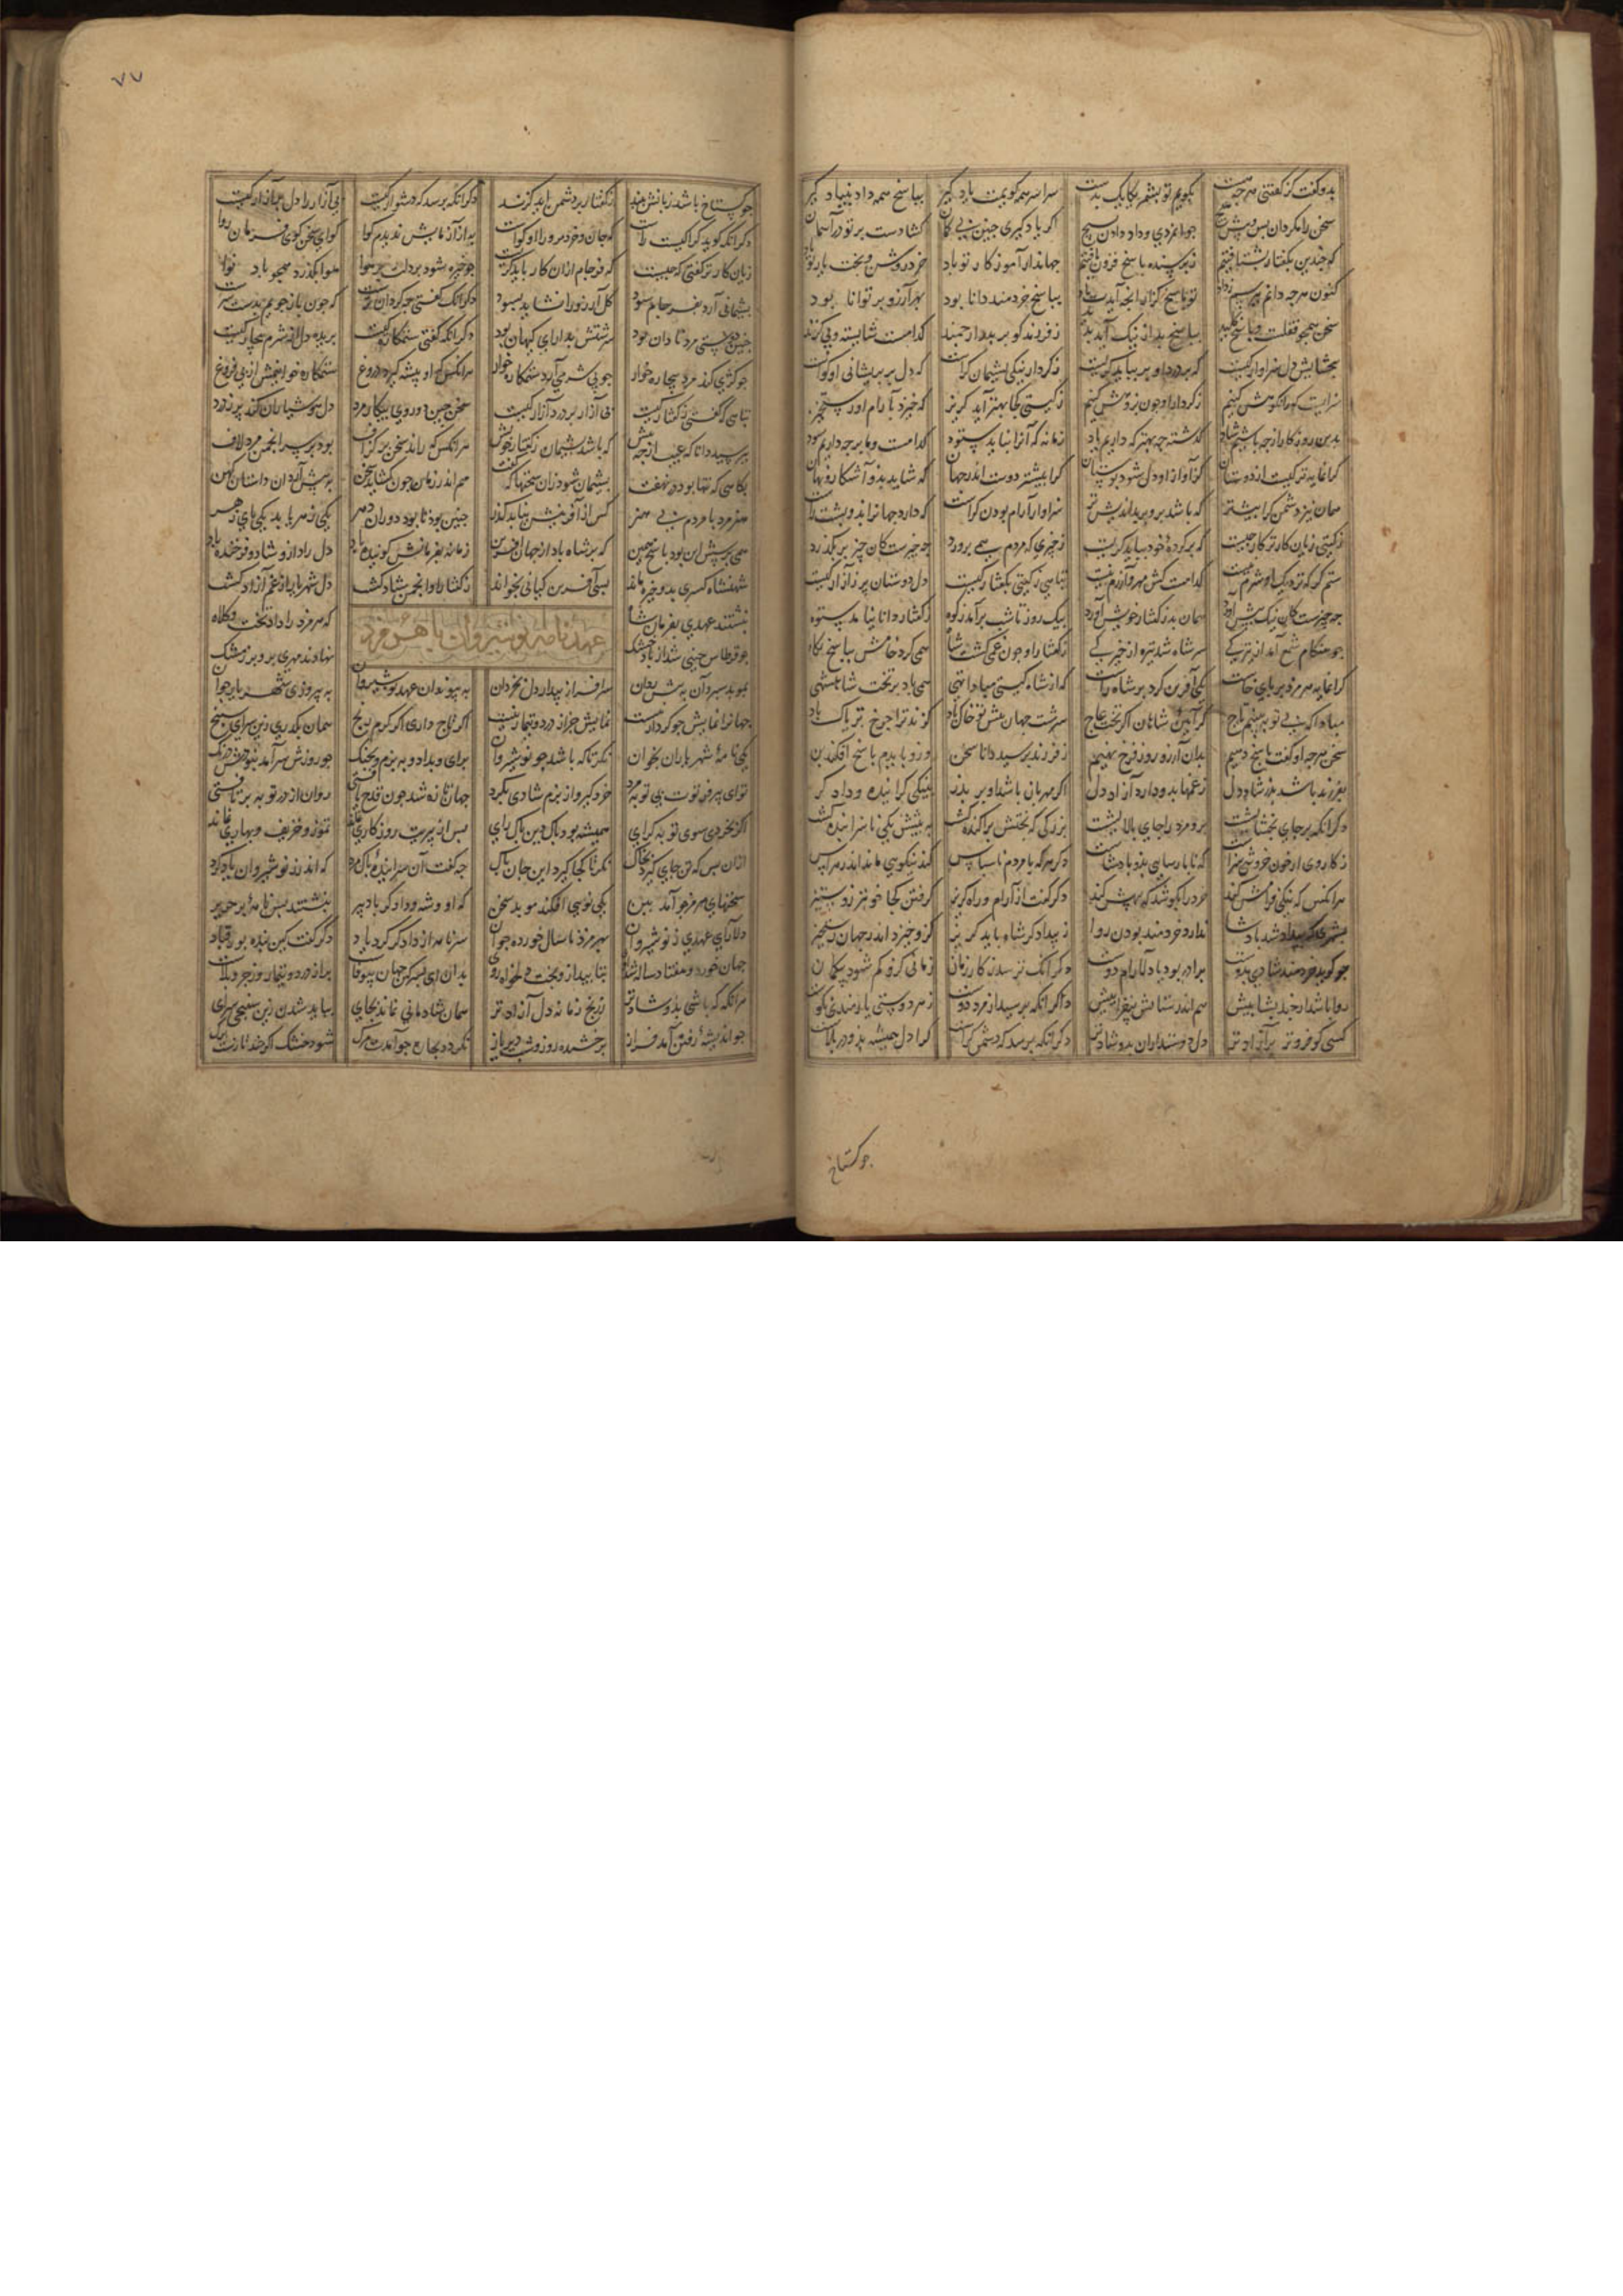 بدو گفت کز گفتنی هر چه هست بگویم تو بشمر یکایک بدست سراسر همه گویمت یاد گیر بپاسخ همه داد بنیاد گیر
سخن را مگردان پس و پیش هیچ جوانمردی و داد دادن بسیچ اگر یاد گیری چنین بی گمان گشادست بر تو در آسمان
که چندین بگفتار بشتافتیم ز پرسنده پاسخ فزون یافتیم جهاندار آموزگار تو باد خرد روشن و بخت یار تو باد
کنون هرچه دانم بپرسم ز داد تو پاسخ گزار آنچه آیدت یاد بپاسخ خردمند دانا بود بهر آرزو بر توانا بود
سخن همچو قفلست و پاسخ کلید بپاسخ بد از نیک آید پدید ز فرزند کو بر پدر ارجمند کدامست شایسته و بی گزند
بخشایش دل سزاوار کیست که بر درد او بر بباید گریست ز کردار نیکی پشیمان کراست که دل بر پشیمانی او گواست
سزا کیست کو را نکوهش کنیم ز کردار او چون پژوهش کنیم ز گیتی کجا بهتر آید گریز که خیزد بآرام او رستخیز
بدین روزگار از چه باشیم شاد گذشته چه بهتر که داریم یاد زمانه که آنرا نباید ستود کدامست و ما بر چه داریم سود
گرانمایه تر کیست از دوستان کز آواز او دل شود بوستان کرا بیشتر دوست اندر جهان که شاید بدو آشکار و نهان
همان نیز دشمن کرا بیشتر که باشد برو بر بداندیش تر سزاوار آرام بودن کجاست که دارد جهاندار ازو پشت راست
ز گیتی زیان کارتر کار چیست که بر کرده خود بباید گریست ز چیزی که مردم همی پرورد چه چیزست کان زودتر بگذرد
ستم گر که نزدیک او شرم نیست کدامست کش مهر و آزرم نیست تباهی ز گیتی بگفتار کیست دل دوستان پر ز آزار کیست
چه چیزست کان ننگ پیش آورد همان بد ز گفتار خویش آورد بیک روز تا شب برآمد ز کوه ز گفتار دانا نیامد ستوه
چو هنگام شمع آمد از تیرگی سر شاه شد تیره از خیرگی ز گفتار او چون غمی گشت شاه همی کرد خامش بپاسخ نگاه
گرانمایه هرمزد بر پای خاست یکی آفرین کرد بر شاه راست که از شاه گیتی مبادا تهی همی باد بر تخت شاهنشهی
مبادا که بی تو ببینیم تاج گر آیین شاهان اگر تخت عاج سرشت جهان پیش تو خاک باد گزند ترا چرخ تریاک باد
سخن هر چه او گفت پاسخ دهیم بدان آرزو روز فرخ نهیم ز فرزند پرسید دانا سخن وزو بایدم پاسخ افکند بن
بفرزند باشد پدر شاد دل ز غمها بدو دارد آزاد دل اگر مهربان باشد او بر پدر بنیکی گراینده و دادگر
دگر آنکه بر جای بخشایشست برو مرد را جای پالایشست بزرگی که بختش پراکنده گشت به پیش یکی ناسزا بنده گشت
ز کار وی ار خون خروشی سزاست که ناپارسایی بدو پادشاست دگر هر که با مردم ناسپاس کند نیکویی ماند اندر هراس
هر آنکس که نیکی فرامش کند خرد را بکوشد که بیهش کند دگر گفت از آرام و راه گریز گرفتن کجا خوبتر زو ستیز
بشهری که بیداد شد پادشا ندارد خردمند بودن روا ز بیدادگر شاه باید گریز کزو خیزد اندر جهان رستخیز
چو گوید خردمند شادی بدوست برادر بود با دلارام دوست دگر آنک پرسد ز کار زمان زمانی کزو کم شود بدگمان
روا باشد ار چند بستایدش هم اندر ستایش بیفزایدش دگر آنکه پرسید از مرد دوست ز هر دوستی یارمندی نکوست
کسی کو فروتر برادرت دل دوستداران بدو شادتر دگر آنکه پرسد که دشمن کراست کرا دل همیشه بد و در بلاست
چو گستاخ
۷۷
چو گستاخ باشد زبانش ببد ز گفتار برو دشمن آید گزند دگر آنکه پرسد که دشوار چیست بی آزار را دل بی آزار کیست
دگر آنک گوید گوا کیست راست که جان و خرد مرو را او گواست به از آزمایش ندیدم گوا گوای سخن گوی فرمان روا
زیان کارتر گفتی که چیست که فرجام ازان کار باید گریست چو چیره شود بر دلت بر هوا هوا بگذرد همچو باد هوا
پشیمانی آرد بفرجام سود گل آرزو را نشاید بسود دگر آنک گفتی چه گردان ترست که چون باز جویم بدست
چنین دوستی مرد نادان بود سرشتش بدارای گیهان بود دگر آنکه گفتی ستمکاره کیست بریده دل از شرم بیچاره کیست
چو کژی کند مرد بیچاره خوان چو بی شرمی آرد ستمکاره خوان هر آنکس که او پیشه گیرد دروغ ستمکاره خوانیمش از بی فروغ
تباهی که گفتی ز گفتار کیست بی آزار بر درد آزار کیست سخن چین و دوروی و بیکار مرد دل هوشیاران کند پر ز درد
بپرسید دانا که عیب از چه بیش که باشد پشیمان ز گفتار خویش هر آنکس که راند سخن بر گزاف بود بر سر انجمن مرد لاف
بگاهی که تنها بود در نهفت پشیمان شود زان سخنها که گفت هم اندر زمان چون گشاید سخن به پیش آرد آن داستان کهن
هنرمند با مردم بی هنر کس از آفرینش نیابد گذر چنین بود تا بود دوران دهر یکی زهر یابد یکی پای زهر
همی پرسش این بود پاسخ همین که بر شاه باد از جهان آفرین زمانه بفرمانش گوینده باد دل راد ازو شاد و فرخنده باد
شهنشاه کسری بدو خیره ماند بسی آفرین کیانی بخواند ز گفتار او انجمن شاد گشت دل شهریار از غم آزاد گشت
نبشتند عهدی بفرمان شاه که هرمزد را داد تخت و کلاه
عهدنامه نوشیروان با هرمزد
چو قرطاس چینی شد از باد خشک نهادند مهری بروبر ز مشک
بموبد سپرد آن به پیش ردان سرافراز بیدار دل بخردان به پیوند آن عهد نوشیروان به پیروزی شهریار جوان
جهانرا نمایش چو کردار نیست نمایش جز از درد و تیمار نیست اگر تاج داری اگر گرم و رنج همان بگذری زین سرای سپنج
یکی نامه شهریاران بخوان نگر تا که باشد چو نوشیروان برای و بداد و به بزم و بجنگ چو روزش سرآمد نبودش درنگ
تو ای پیر فرتوت بی توبه مرد خرد گیر و از بزم شادی بگرد جهان تازه شد چون قدح یافتی روان از در توبه برتافتی
اگر بخردی سوی توبه گرای همیشه بود پاک دین پاک رای پس از پیریت روزگاری نماند تموز و خریف و بهاری نماند
ازان پس که تن جای گیرد بخاک نگر تا کجا گیرد این جان پاک چه گفت آن سراینده پاک مرد که اندرز نوشیروان یاد کرد
سخنهای هرمز چو آمد ببن یکی نو پی افکند موبد سخن که او شه و دادگر با دبیر نبشتند پس نامه بر حریر
دلارای عهدی ز نوشیروان بهرمزد ناسال خورده جوان سر نامه از دادگر کرد یاد دگر گفت کین پند پور قباد
بدان ای پسر کین جهان بی وفاست پر از درد و تیمار و رنج و بلاست
هر آنگه که باشی بدو شادتر ز رنج زمانه دل آزادتر همان شادمانی نماند بجای بباید شدن زین سپنجی سرای
چو اندیشه رفتن آمد فراز برخشنده روز و شب دیریاز